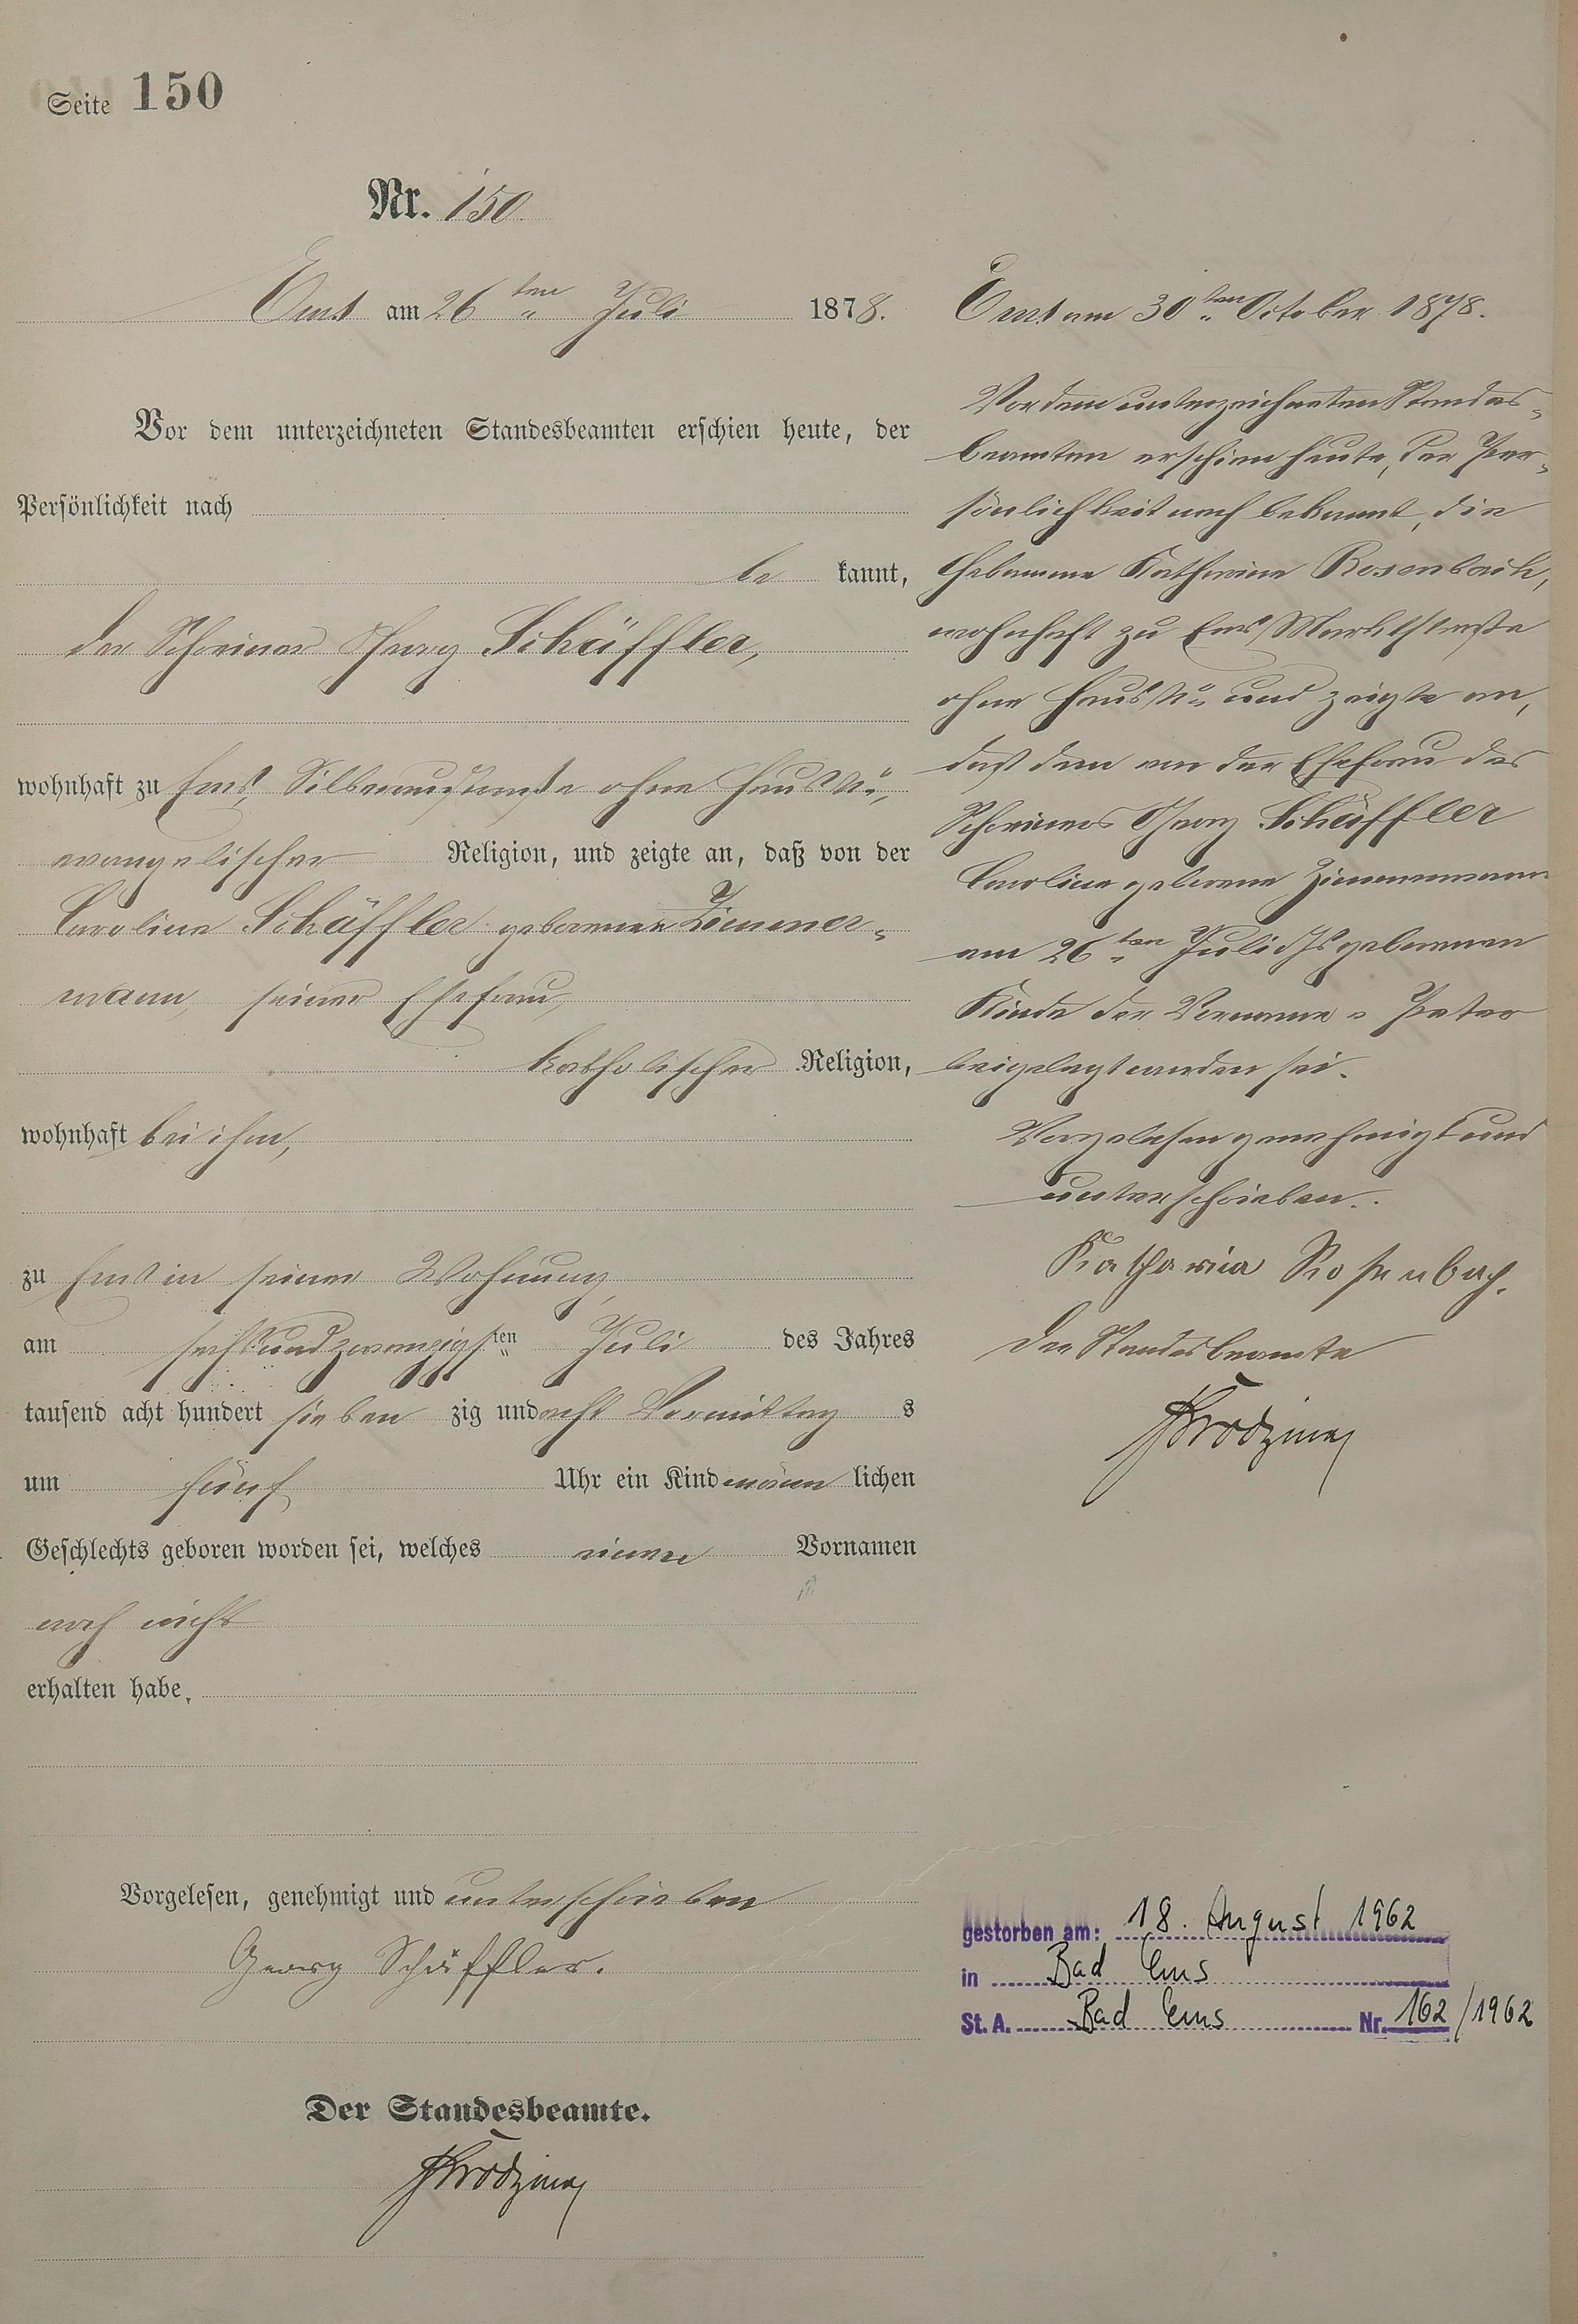 Seite 150
Nr. 150
Ems am 26ten Juli 1878.
Vor dem unterzeichneten Standesbeamten erschien heute, der
Persönlichkeit nach
be kannt,
der Schreiner Georg Schäffler,
wohnhaft zu Ems, Silberaustraße ohne Haus No,
evangelischer Religion, und zeigte an, daß von der
Caroline Schäffler geborenen Zimmer-
mann, seiner Ehefrau,
katholischer Religion,
wohnhaft bei ihm,
zu Ems in seiner Wohnung,
am sechsundzwanzigsten Juli des Jahres
tausend acht hundert sieben zig und acht Vormittag s
um fünf Uhr ein Kind männ lichen
Geschlechts geboren worden sei, welches einen Vornamen
noch nicht
erhalten habe.
Vorgelesen, genehmigt und unterschrieben
Georg Schäffler.
Der Standesbeamte.
Ems am 30ten October 1878.
Vor dem unterzeichneten Standes-
beamten erschien heute, der Per-
sönlichkeit nach bekannt, die
Hebamme Katharina Rosenbach,
wohnhaft zu Ems Marktstraße
ohne Haus No und zeigte an,
daß dem von der Ehefrau des
Schreiners Georg Schäffler
Caroline geborene Zimmermann
am 26ten Juli djs geborenen
Kinde der Vorname Peter
beigelegt worden sei.
Vorgelesen genehmigt und
unterschrieben.
Katharina Rosenbach.
Der Standesbeamte
gestorben am: 18. August 1962
in Bad Ems
St. A. Bad Ems Nr. 162/1962